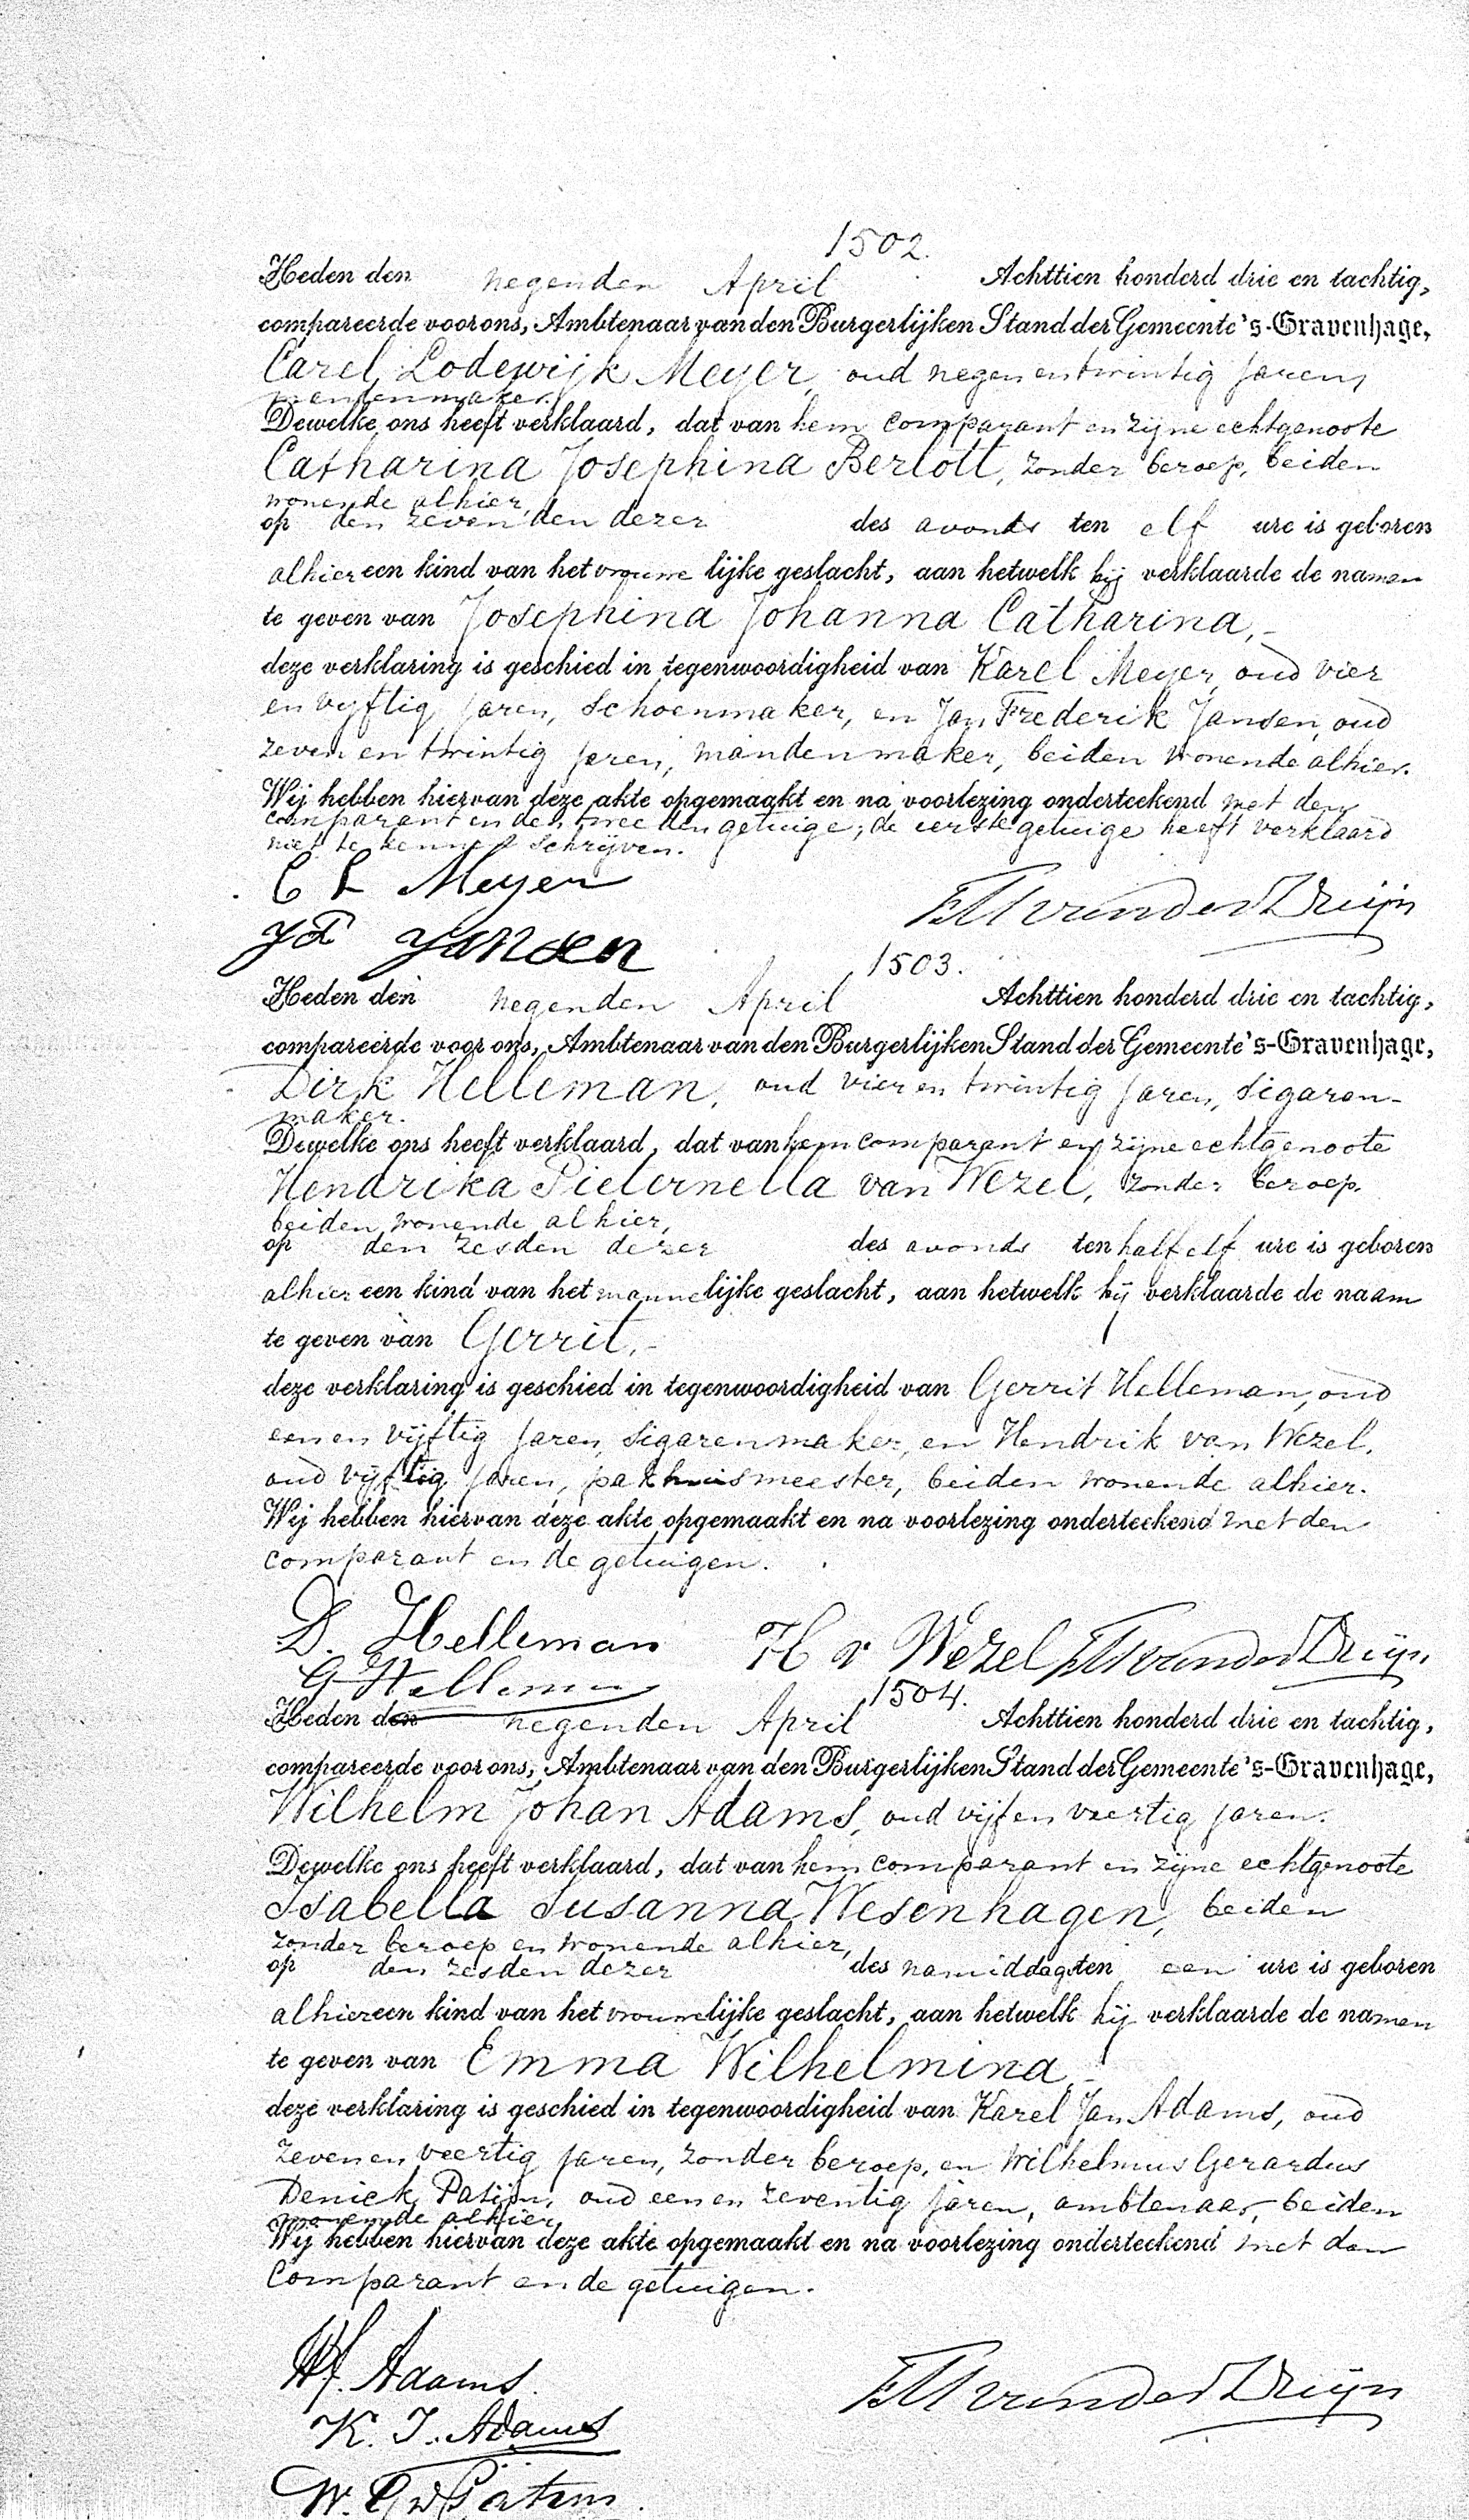 1502.
Heden den negenden April Achttien honderd drie en tachtig,
compareerde voor ons, Ambtenaar van den Burgerlijken Stand der Gemeente 's-Gravenhage,
Carel Lodewijk Meyer, oud negen en twintig jaren,
mandenmaker.
Dewelke ons heeft verklaard, dat van hem comparant en zijne echtgenoote
Catharina Josephina Berlott, zonder beroep, beiden
wonende alhier,
op den zevenden dezer des avonds ten elf ure is geboren
alhier een kind van het vrouwelijke geslacht, aan hetwelk hij verklaarde de namen
te geven van Josephina Johanna Catharina,-
deze verklaring is geschied in tegenwoordigheid van Karel Meyer, oud vier
en vijftig jaren, schoenmaker, en Jan Frederik Jansen, oud
zeven en twintig jaren, mandenmaker, beiden wonende alhier.
Wij hebben hiervan deze akte opgemaakt en na voorlezing onderteekend met den
comparant en den tweeden getuige; de eerste getuige heeft verklaard
niet te kennen schrijven.
C L Meyer
J F Jansen
1503.
Heden den negenden April Achttien honderd drie en tachtig,
compareerde voor ons, Ambtenaar van den Burgerlijken Stand der Gemeente 's-Gravenhage,
Dirk Helleman, oud vier en twintig jaren, sigaren-
maker.
Dewelke ons heeft verklaard, dat van hem comparant en zijne echtgenoote
Hendrika Pieternella van Wezel, zonder beroep,
beiden wonende alhier,
op den zesden dezer des avonds ten half elf ure is geboren
alhier een kind van het mannelijke geslacht, aan hetwelk hij verklaarde de naam
te geven van Gerrit,-
deze verklaring is geschied in tegenwoordigheid van Gerrit Helleman, oud
een en vijftig jaren, sigarenmaker, en Hendrik van Wezel,
oud vijftig jaren, pakhuismeester, beiden wonende alhier.
Wij hebben hiervan deze akte opgemaakt en na voorlezing onderteekend met den
comparant en de getuigen.
D. Helleman H v Wezel
G Helleman
1504.
Heden den negenden April Achttien honderd drie en tachtig,
compareerde voor ons, Ambtenaar van den Burgerlijken Stand der Gemeente 's-Gravenhage,
Wilhelm Johan Adams, oud vijf en veertig jaren.
Dewelke ons heeft verklaard, dat van hem comparant en zijne echtgenoote
Isabella Susanna Wesenhagen, beiden
zonder beroep en wonende alhier,
op den zesden dezer des namiddags ten een ure is geboren
alhier een kind van het vrouwelijke geslacht, aan hetwelk hij verklaarde de namen
te geven van Emma Wilhelmina,-
deze verklaring is geschied in tegenwoordigheid van Karel Jan Adams, oud
zeven en veertig jaren, zonder beroep, en Wilhelmus Gerardus
oud een en zeventig jaren, ambtenaar, beiden
wonende alhier
Wij hebben hiervan deze akte opgemaakt en na voorlezing onderteekend met den
comparant en de getuigen.
WJ. Adams.
K. J. Adams